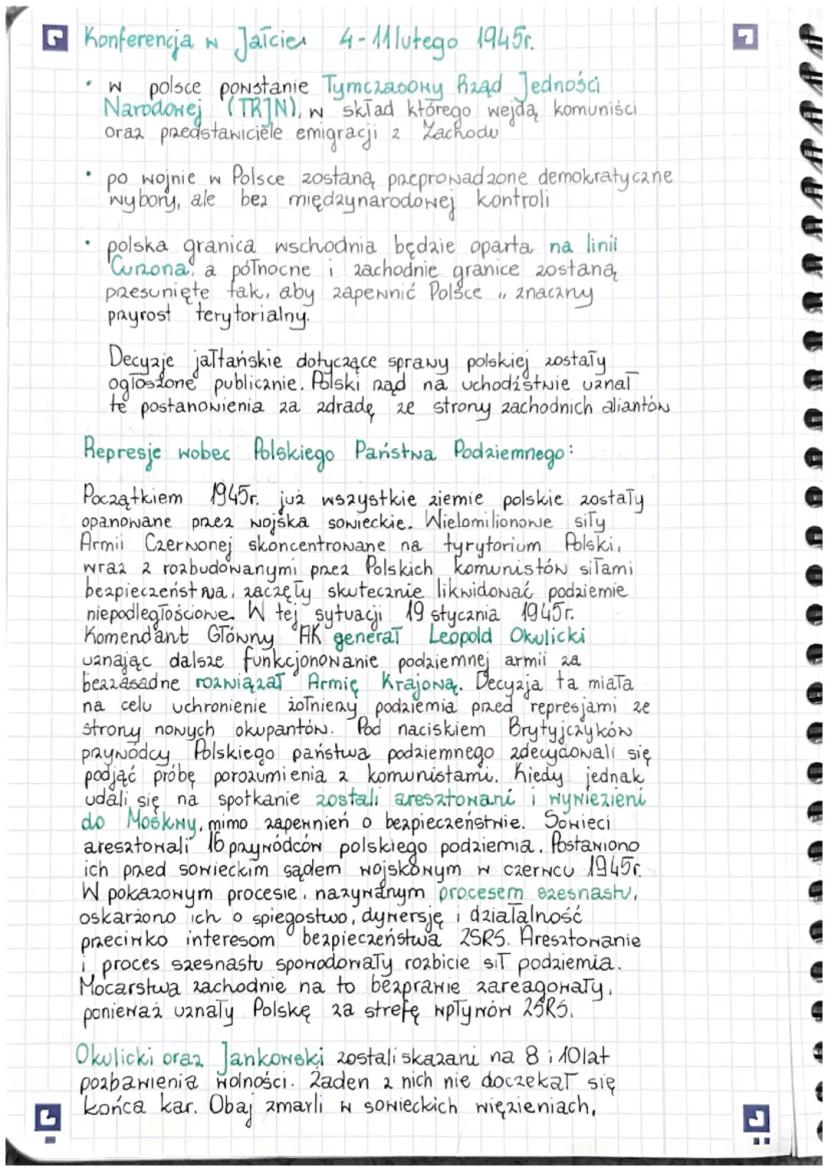 Konferencja w Jałcie 4-11 lutego 1945r.
• w polsce powstanie Tymczasowy Rząd Jedności
Narodowej (TRJN), w skład którego wejdą komuniści
oraz przedstawiciele emigracji z Zachodu
• po wojnie w Polsce zostaną przeprowadzone demokratyczne
wybory, ale bez międzynarodowej kontroli
• polska granica wschodnia będzie oparta na linii
Curzona, a północne i zachodnie granice zostaną
przesunięte tak, aby zapewnić Polsce „ znaczny
przyrost terytorialny.
Decyzje jałtańskie dotyczące sprawy polskiej zostały
ogłoszone publicznie. Polski rząd na uchodźstwie uznał
te postanowienia za zdradę ze strony zachodnich aliantów
Represje wobec Polskiego Państwa Podziemnego:
Początkiem 1945r. już wszystkie ziemie polskie zostały
opanowane przez wojska sowieckie. Wielomilionowe siły
Armii Czerwonej skoncentrowane na tyrytorium Polski,
wraz z rozbudowanymi przez Polskich komunistów siłami
bezpieczeństwa, zaczęły skutecznie likwidować podziemie
niepodległościowe. W tej sytuacji 19 stycznia 1945r.
Komendant Główny AK generał Leopold Okulicki
uznając dalsze funkcjonowanie podziemnej armii za
bezzasadne rozwiązał Armię Krajową. Decyzja ta miała
na celu uchronienie żołnierzy podziemia przed represjami ze
strony nowych okupantów. Pod naciskiem Brytyjczyków
przywódcy Polskiego państwa podziemnego zdecydowali się
podjąć próbę porozumienia z komunistami. Kiedy jednak
udali się na spotkanie zostali aresztowani i wywiezieni
do Moskwy, mimo zapewnień o bezpieczeństwie. Sowieci
aresztowali 16 przywódców polskiego podziemia. Postawiono
ich przed sowieckim sądem wojskowym w czerwcu 1945r.
W pokazowym procesie, nazywanym procesem szesnastu,
oskarżono ich o szpiegostwo, dywersję i działalność
przeciwko interesom bezpieczeństwa ZSRS. Aresztowanie
i proces szesnastu spowodowały rozbicie sił podziemia.
Mocarstwa zachodnie na to bezprawie zareagowały,
ponieważ uznały Polskę za strefę wpływów ZSRS.
Okulicki oraz Jankowski zostali skazani na 8 i 10 lat
pozbawienia wolności. Żaden z nich nie doczekał się
końca kar. Obaj zmarli w sowieckich więzieniach,